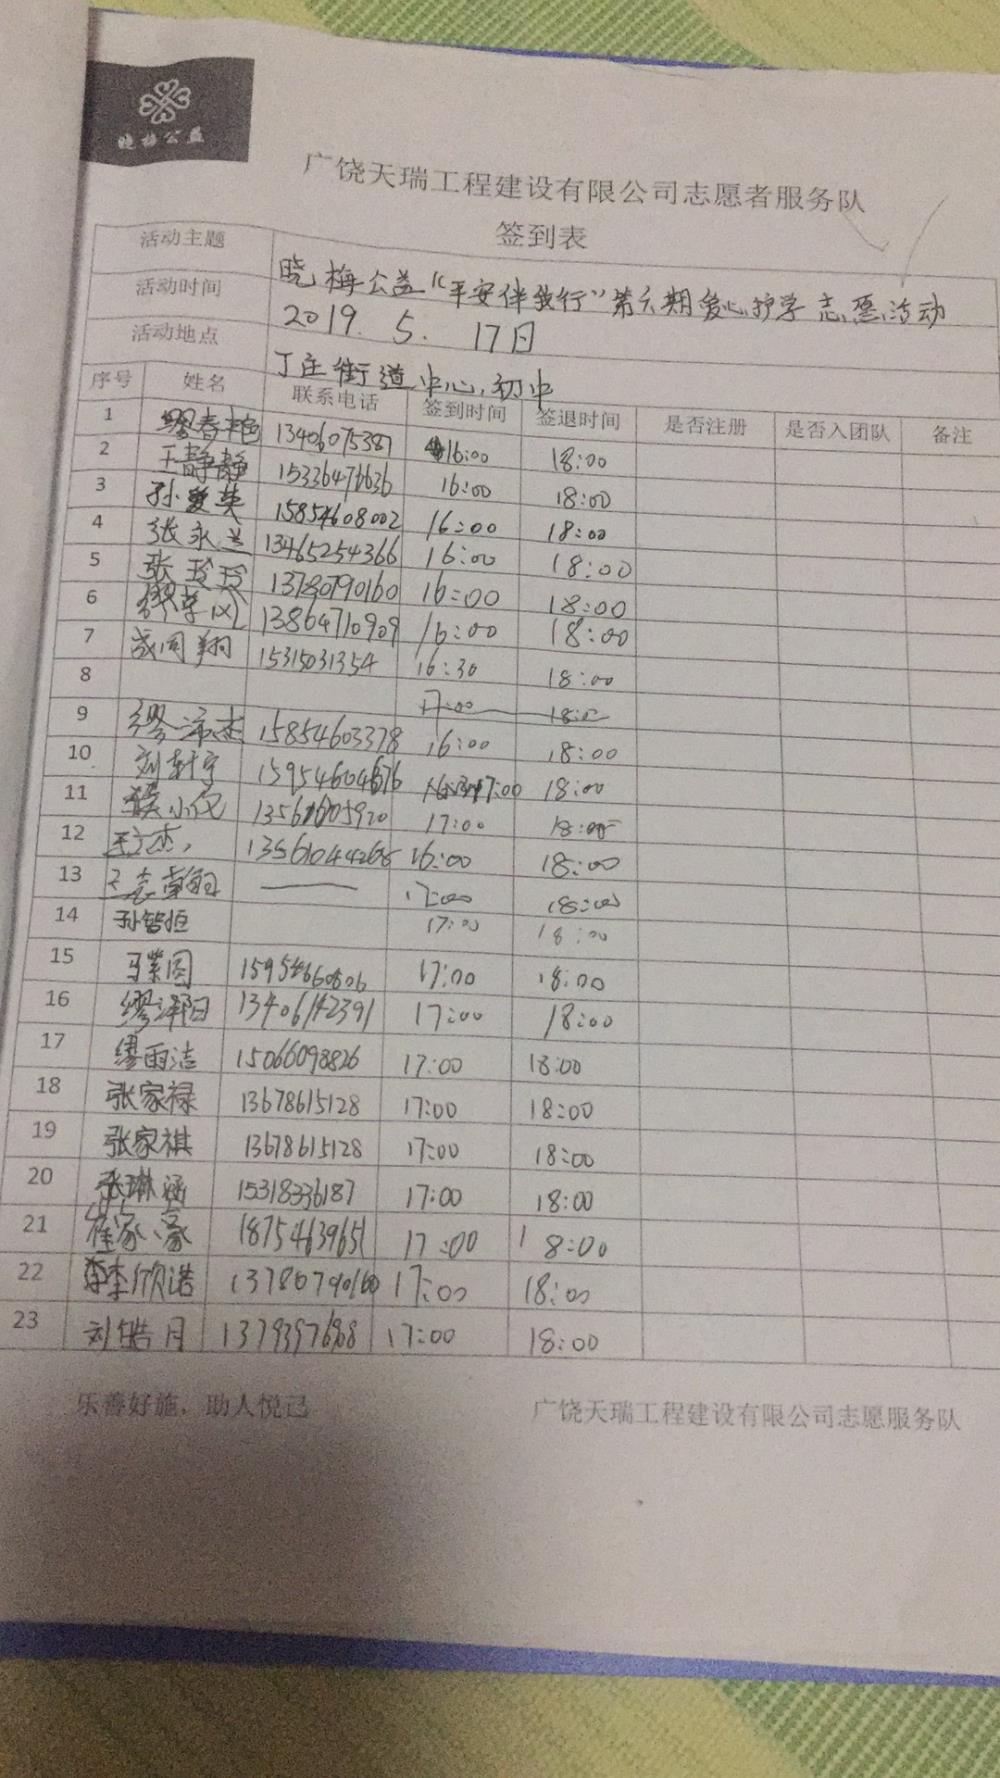 晓梅公益
广饶天瑞工程建设有限公司志愿者服务队
签到表
活动主题 晓梅公益“平安伴我行”第六期爱心护学志愿活动
活动时间 2019. 5. 17日
活动地点 丁庄街道中心初中
序号 姓名 联系电话 签到时间 签退时间 是否注册 是否入团队 备注
1 缪春艳 13406075387 16:00 18:00
2 王静静 15336476636 16:00 18:00
3 孙爱英 15854608002 16:00 18:00
4 张永兰 13465254366 16:00 18:00
5 张玲玲 13780790160 16:00 18:00
6 13864710909 16:00 18:00
7 翔 15315031354 16:30 18:00
8 17:00 18:0
9 缪 杰 15854603378 16:00 18:00
10 刘轩宇 15954604676 17:00 18:00
11 17:00 18:00
12 王文杰 13561044268 16:00 18:00
13 17:00 18:00
14 孙智恒 17:00 18:00
15 17:00 18:00
16 缪泽阳 13406142391 17:00 18:00
17 缪雨洁 15066098826 17:00 18:00
18 张家禄 13678615128 17:00 18:00
19 张家祺 13678615128 17:00 18:00
20 张琳涵 15318336187 17:00 18:00
21 崔家豪 18754639651 17:00 18:00
22 李欣诺 13780790160 17:00 18:00
23 刘皓月 17:00 18:00
乐善好施，助人悦己 广饶天瑞工程建设有限公司志愿服务队